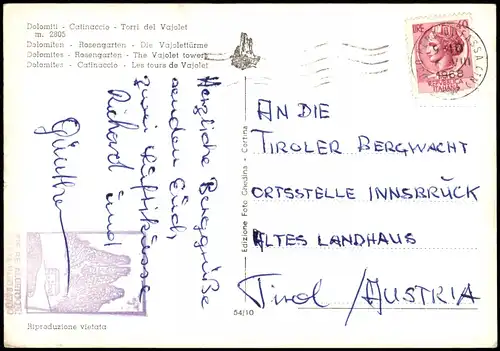 Dolomiti - Catinaccio - Torri del Vajolet
m. 2805
Dolomiten - Rosengarten - Die Vajolettürme
Dolomites - Rosengarten - The Vajolet towers
Dolomites - Catinaccio - Les tours de Vajolet
Herzliche Berggrüße
senden Euch
zwei
Richard und
Günther
Riproduzione vietata
54/10
Edizione Foto Ghedina - Cortina
LIRE 40
1968
REPUBBLICA
ITALIANA
AN DIE
TIROLER BERGWACHT
ORTSSTELLE INNSBRÜCK
ALTES LANDHAUS
Tirol / AUSTRIA